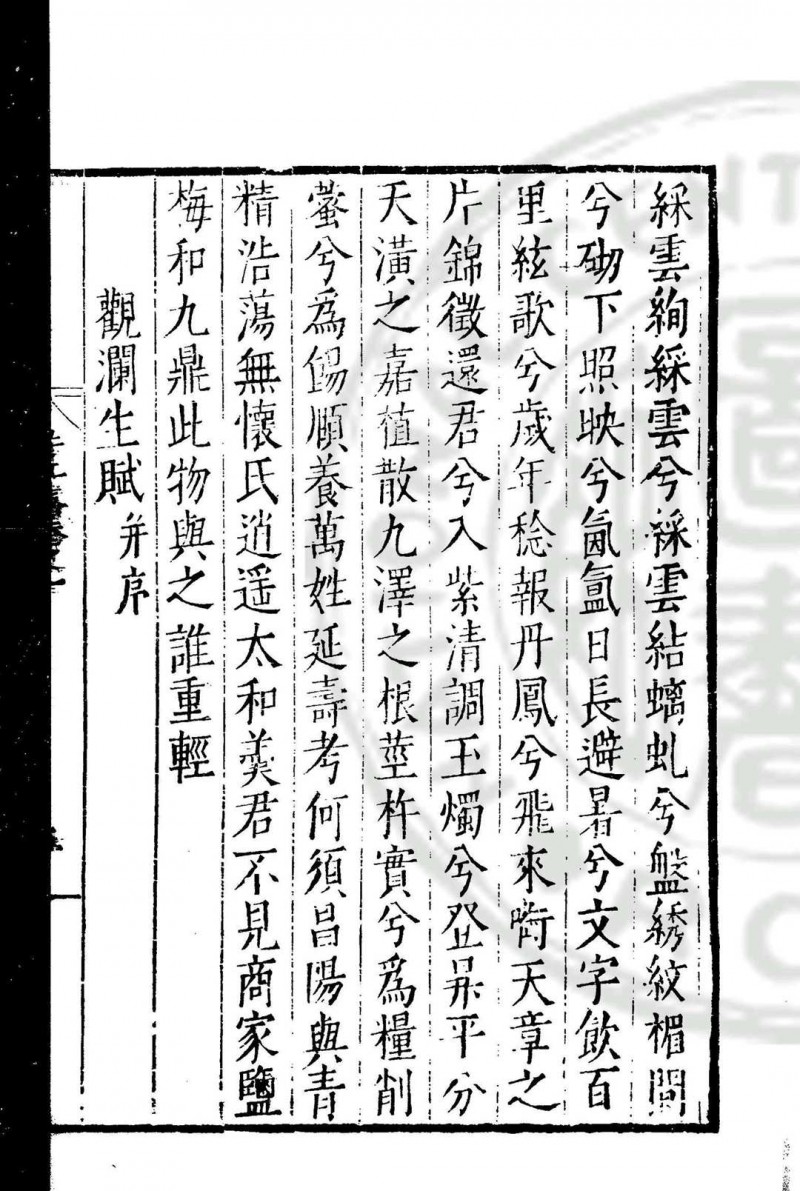 綵雲絢綵雲兮綵雲結螭虬兮盤綉紋楣間
兮砌下照映兮氤氳日長避暑兮文字飲百
里絃歌兮歲年稔報丹鳳兮飛來啣天章之
片錦徵還君兮入紫清調玉燭兮登昇平分
天潢之嘉植散九澤之根莖杵實兮為糧削
蜜兮為餳順養萬姓延壽考何須昌陽與青
精浩蕩無懷氏逍遥太和羹君不見商家鹽
梅和九鼎此物與之誰重輕
觀瀾生賦 并序